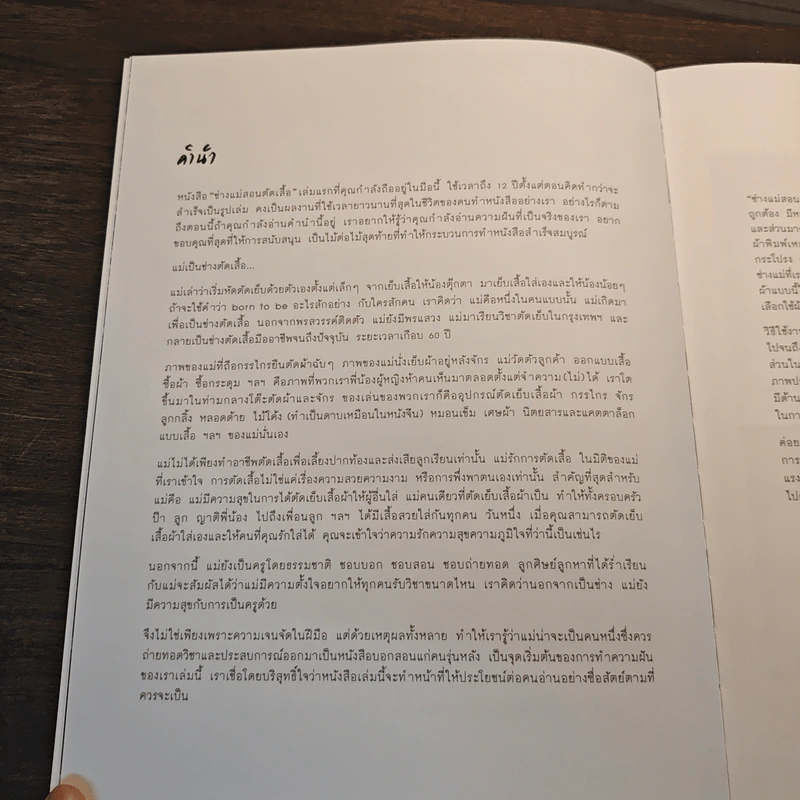 คำนำ
หนังสือ "ช่างแม่สอนตัดเสื้อ" เล่มแรกที่คุณกำลังถืออยู่ในมือนี้ ใช้เวลาถึง 12 ปีตั้งแต่ตอนคิดทำกว่าจะ
สำเร็จเป็นรูปเล่ม คงเป็นผลงานที่ใช้เวลายาวนานที่สุดในชีวิตของคนทำหนังสืออย่างเรา อย่างไรก็ตาม
ถึงตอนนี้ถ้าคุณกำลังอ่านคำนำนี้อยู่ เราอยากให้รู้ว่าคุณกำลังอ่านความฝันที่เป็นจริงของเรา อยาก
ขอบคุณที่สุดที่ให้การสนับสนุน เป็นไม้ต่อไม้สุดท้ายที่ทำให้กระบวนการทำหนังสือสำเร็จสมบูรณ์
แม่เป็นช่างตัดเสื้อ...
แม่เล่าว่าเริ่มหัดตัดเย็บด้วยตัวเองตั้งแต่เล็กๆ จากเย็บเสื้อให้น้องตุ๊กตา มาเย็บเสื้อใส่เองและให้น้องน้อยๆ
ถ้าจะใช้คำว่า born to be อะไรสักอย่าง กับใครสักคน เราคิดว่า แม่คือหนึ่งในคนแบบนั้น แม่เกิดมา
เพื่อเป็นช่างตัดเสื้อ นอกจากพรสวรรค์ติดตัว แม่ยังมีพรแสวง แม่มาเรียนวิชาตัดเย็บในกรุงเทพฯ และ
กลายเป็นช่างตัดเสื้อมืออาชีพจนถึงปัจจุบัน ระยะเวลาเกือบ 60 ปี
ภาพของแม่ที่ถือกรรไกรยืนตัดผ้าฉับๆ ภาพของแม่นั่งเย็บผ้าอยู่หลังจักร แม่วัดตัวลูกค้า ออกแบบเสื้อ
ซื้อผ้า ซื้อกระดุม ฯลฯ คือภาพที่พวกเราพี่น้องผู้หญิงห้าคนเห็นมาตลอดตั้งแต่จำความ(ไม่)ได้ เราโต
ขึ้นมาในท่ามกลางโต๊ะตัดผ้าและจักร ของเล่นของพวกเราก็คืออุปกรณ์ตัดเย็บเสื้อผ้า กรรไกร จักร
ลูกกลิ้ง หลอดด้าย ไม้โค้ง (ทำเป็นดาบเหมือนในหนังจีน) หมอนเข็ม เศษผ้า นิตยสารและแคตตาล็อก
แบบเสื้อ ฯลฯ ของแม่นั่นเอง
แม่ไม่ได้เพียงทำอาชีพตัดเสื้อเพื่อเลี้ยงปากท้องและส่งเสียลูกเรียนเท่านั้น แม่รักการตัดเสื้อ ในมิติของแม่
ที่เราเข้าใจ การตัดเสื้อไม่ใช่แค่เรื่องความสวยความงาม หรือการพึ่งพาตนเองเท่านั้น สำคัญที่สุดสำหรับ
แม่คือ แม่มีความสุขในการได้ตัดเย็บเสื้อผ้าให้ผู้อื่นใส่ แม่คนเดียวที่ตัดเย็บเสื้อผ้าเป็น ทำให้ทั้งครอบครัว
ป๊า ลูก ญาติพี่น้อง ไปถึงเพื่อนลูก ฯลฯ ได้มีเสื้อสวยใส่กันทุกคน วันหนึ่ง เมื่อคุณสามารถตัดเย็บ
เสื้อผ้าใส่เองและให้คนที่คุณรักใส่ได้ คุณจะเข้าใจว่าความรักความสุขความภูมิใจที่ว่านี้เป็นเช่นไร
นอกจากนี้ แม่ยังเป็นครูโดยธรรมชาติ ชอบบอก ชอบสอน ชอบถ่ายทอด ลูกศิษย์ลูกหาที่ได้ร่ำเรียน
กับแม่จะสัมผัสได้ว่าแม่มีความตั้งใจอยากให้ทุกคนรับวิชาขนาดไหน เราคิดว่านอกจากเป็นช่าง แม่ยัง
มีความสุขกับการเป็นครูด้วย
จึงไม่ใช่เพียงเพราะความเจนจัดในฝีมือ แต่ด้วยเหตุผลทั้งหลาย ทำให้เรารู้ว่าแม่น่าจะเป็นคนหนึ่งซึ่งควร
ถ่ายทอดวิชาและประสบการณ์ออกมาเป็นหนังสือบอกสอนแก่คนรุ่นหลัง เป็นจุดเริ่มต้นของการทำความฝัน
ของเราเล่มนี้ เราเชื่อโดยบริสุทธิ์ใจว่าหนังสือเล่มนี้จะทำหน้าที่ให้ประโยชน์ต่อคนอ่านอย่างซื่อสัตย์ตามที่
ควรจะเป็น
"ช่างแม่สอน
ถูกต้อง
และส่วนมา
ผ้าพิมพ์เหม
กระโปรง
ช่างแม่ที่เร
ผ้าแบบนี้
เลือกใช้ผ้
วิธีใช้งาน
ไปจนถึง
ส่วนใน
ภาพปร
มีด้าน
ในกา
ค่อย
การ
แรง
ไป